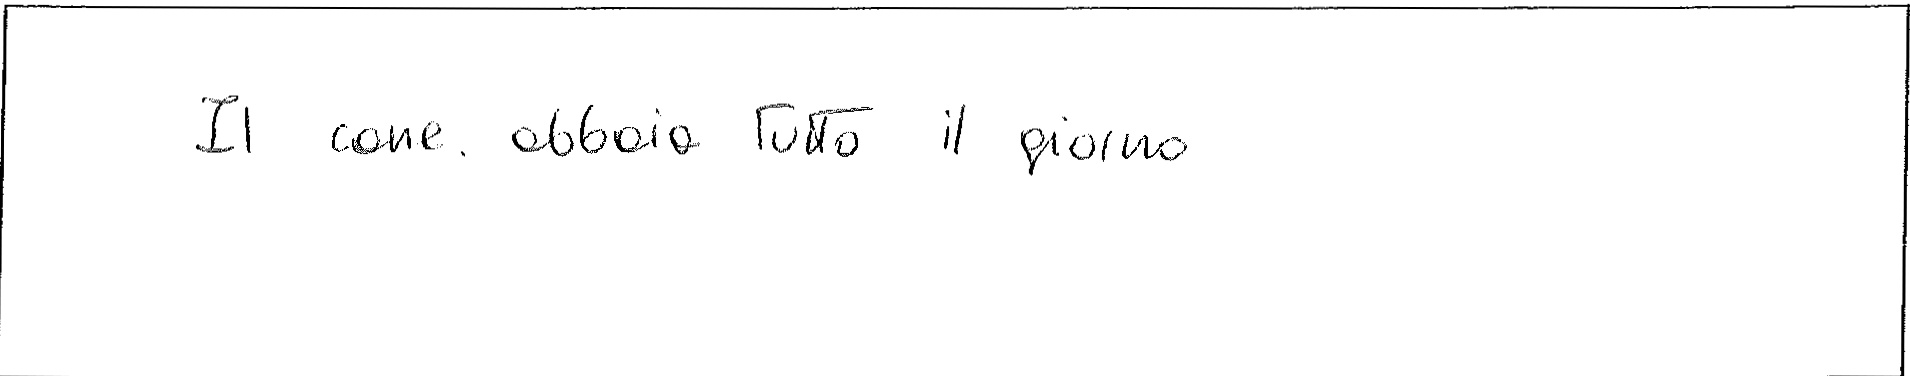 Il cane. abbaia tutto il giorno